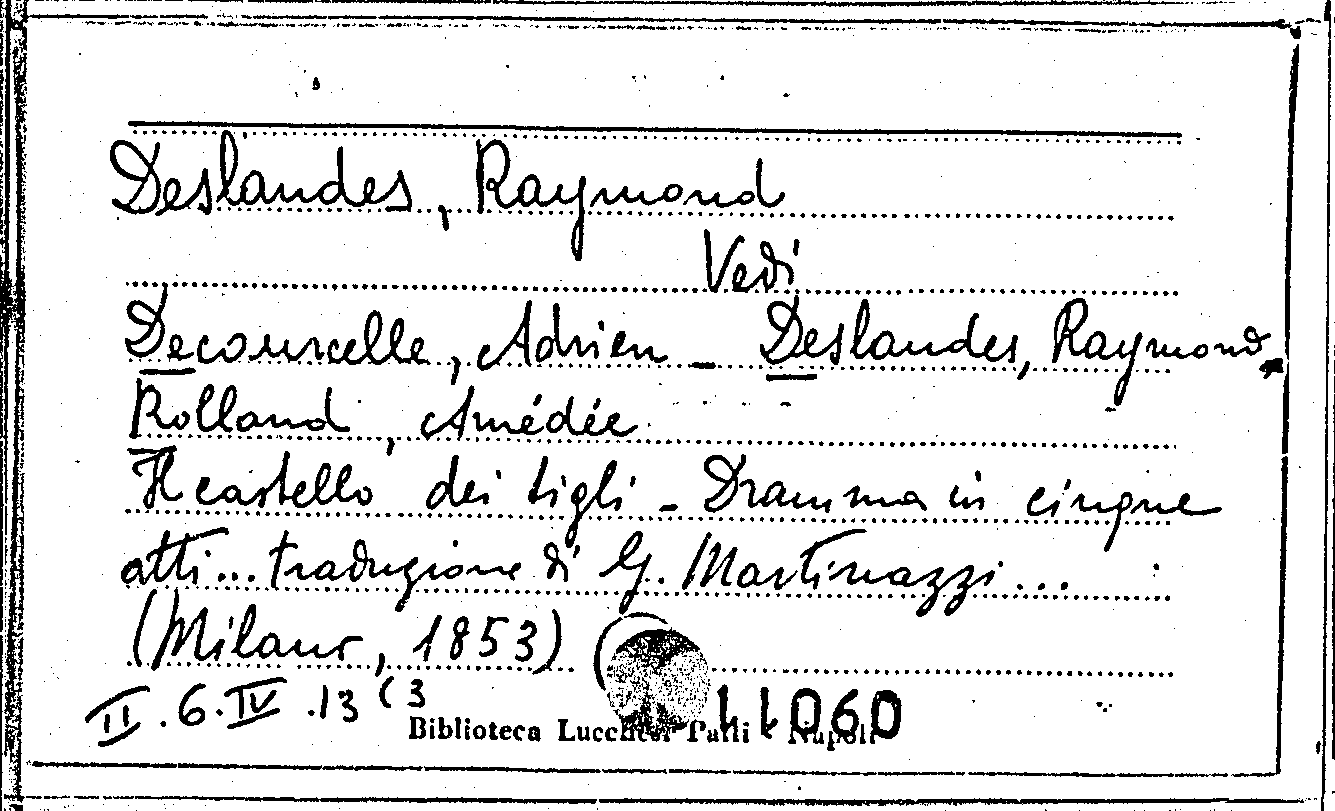 Deslandes, Raymond
Vedi
Decourcelle, Adrien - Deslandes, Raymond,
Rolland, Amédée
Il castello dei tigli - Dramma in cinque
atti... traduzione di G. Martinazzi...
(Milano, 1853)
II.6.IV.13 (3
11060
Biblioteca Lucchesi Palli - Napoli